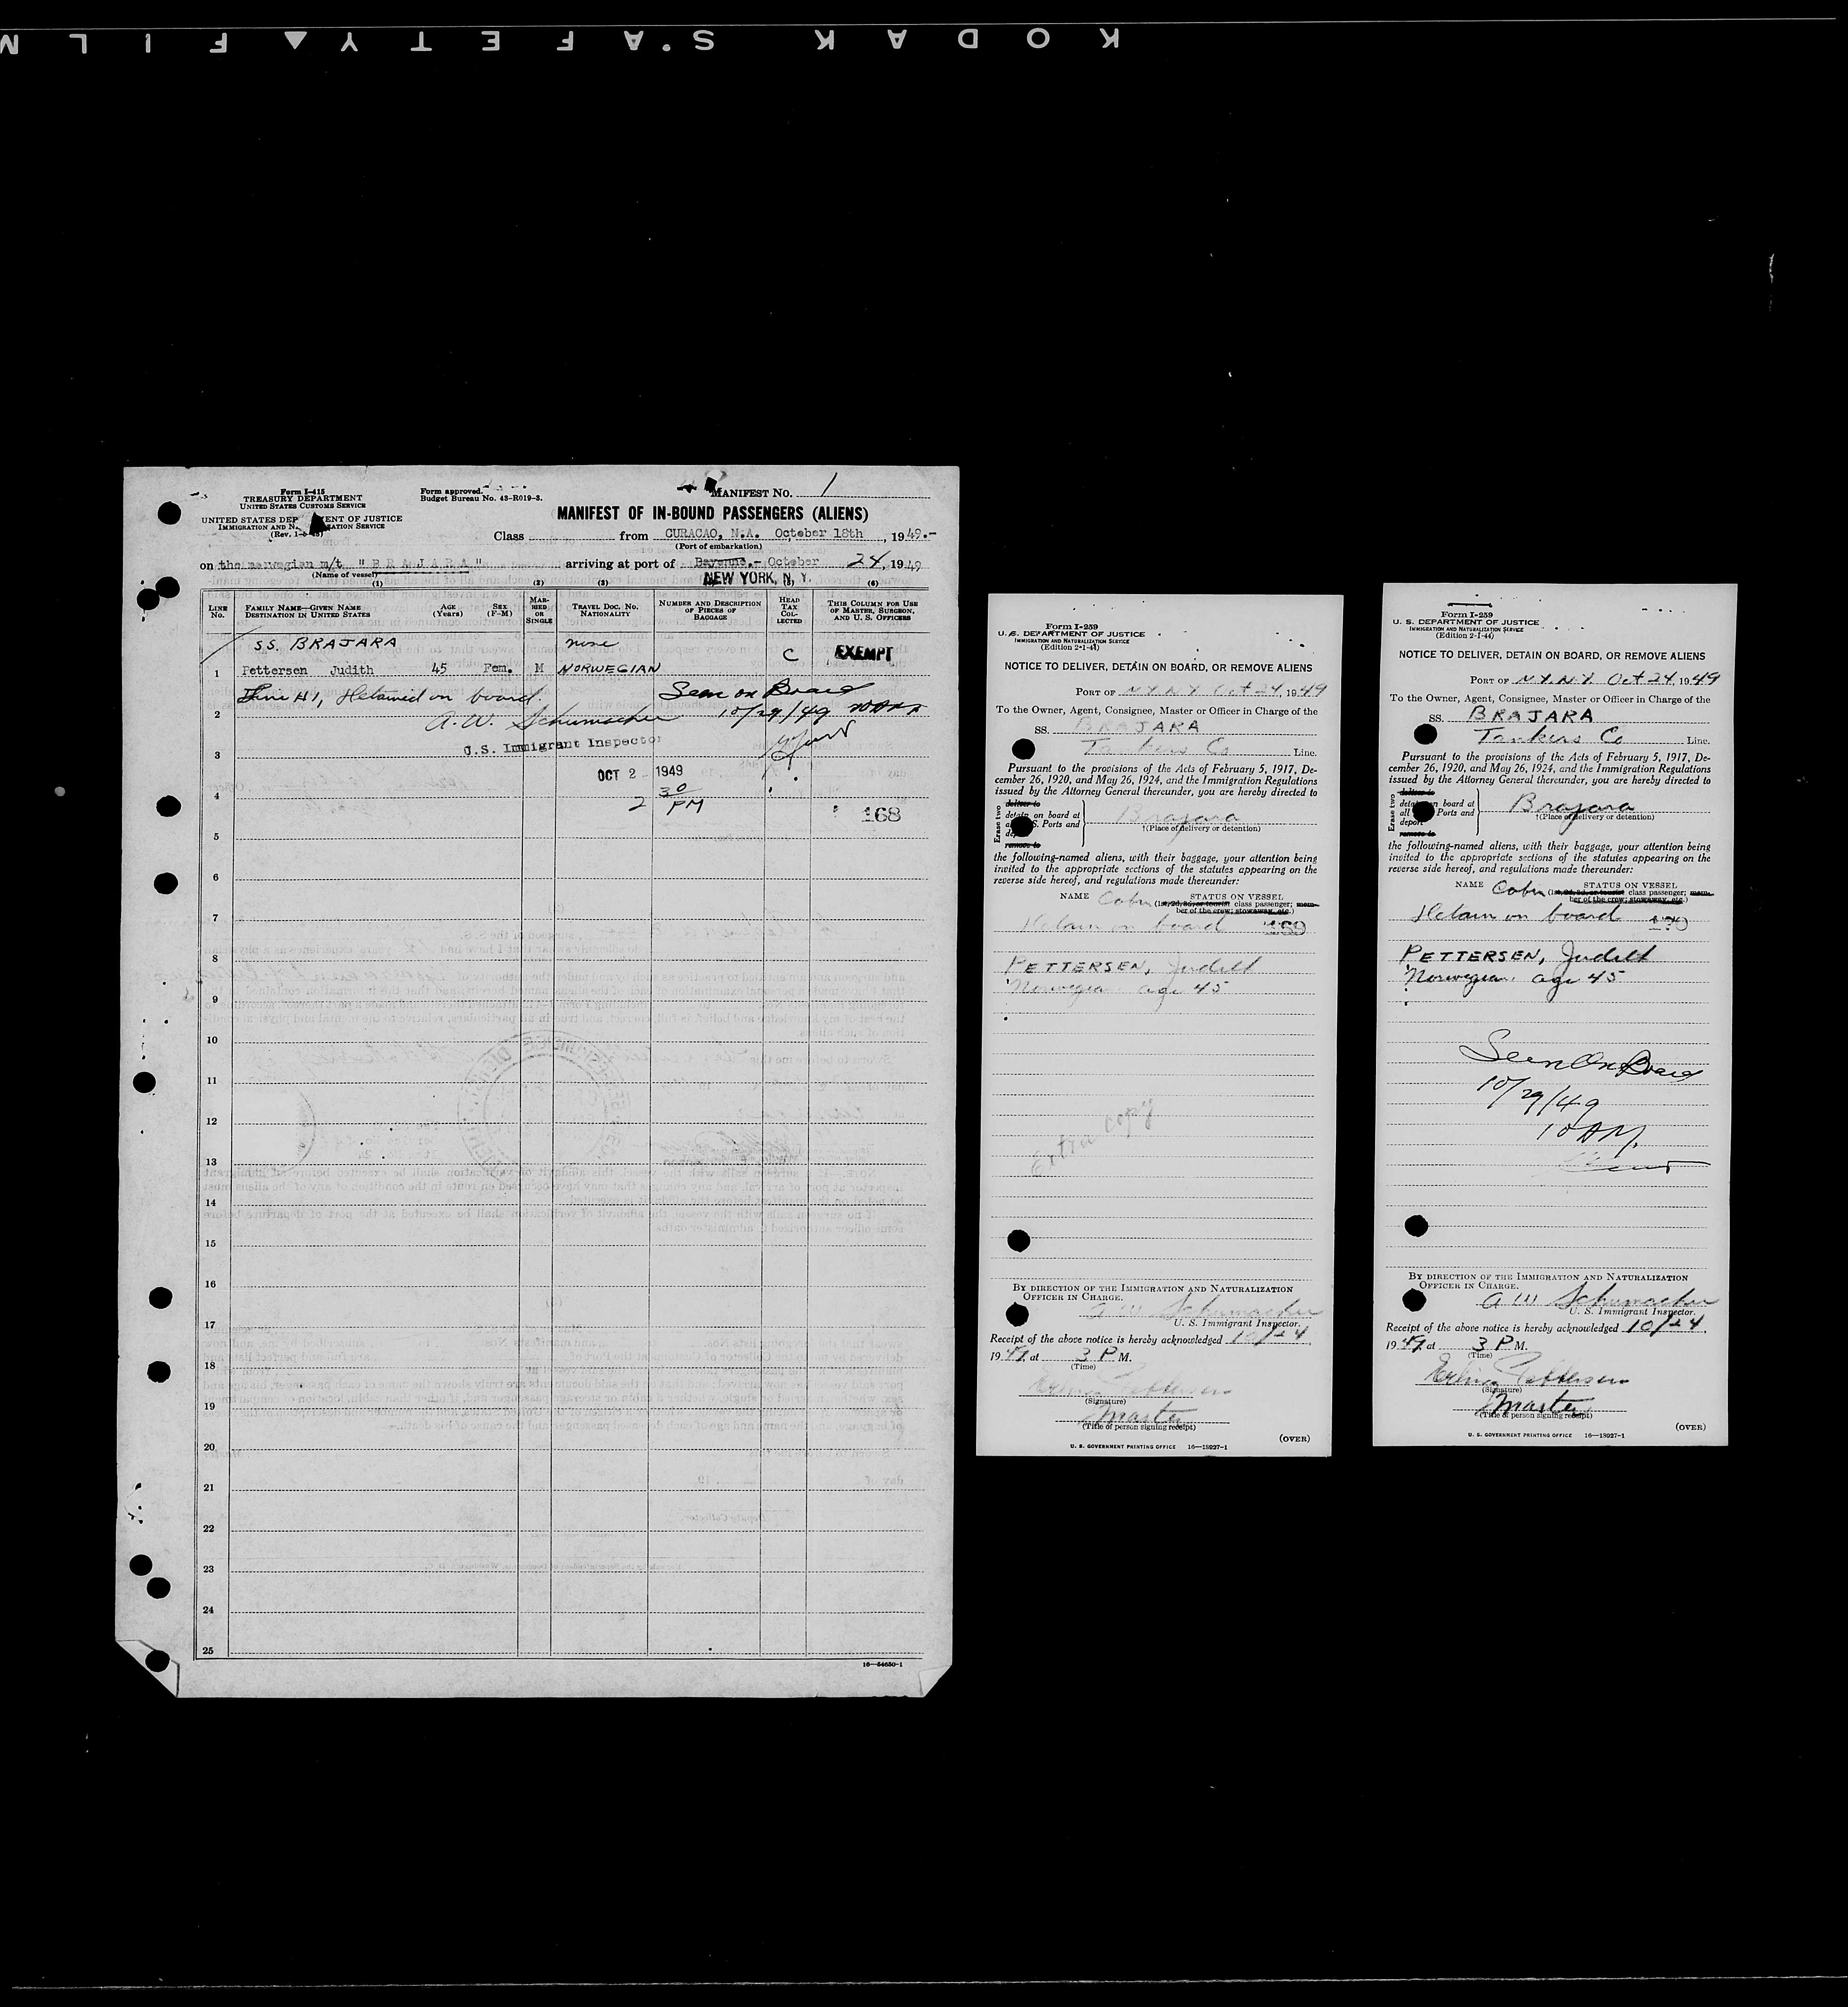 KODAK SAFETY FILM
Form I-415
TREASURY DEPARTMENT
UNITED STATES CUSTOMS SERVICE
UNITED STATES DEP ENT OF JUSTICE
IMMIGRATION AND N ATION SERVICE
Form approved.
Budget Bureau No. 43-R019-3.
MANIFEST NO. 1
MANIFEST OF IN-BOUND PASSENGERS (ALIENS)
Class from CURACAO, N.A. October 18th, 1949.-
(Port of embarkation)
on the norwegian m/t "BRAJARA" arriving at port of Bayonne.- October 24, 1949
(Name of vessel)
NEW YORK, N. Y.
(1) (2) (3) (5) (6)
LINE NO.
FAMILY NAME—GIVEN NAME
DESTINATION IN UNITED STATES
AGE (Years)
SEX (F-M)
MARRIED OR SINGLE
TRAVEL DOC. NO.
NATIONALITY
NUMBER AND DESCRIPTION OF PIECES OF BAGGAGE
HEAD TAX COLLECTED
THIS COLUMN FOR USE OF MASTER, SURGEON, AND U. S. OFFICERS
SS. BRAJARA none
C EXEMPT
1 Pettersen Judith 45 Fem. M NORWEGIAN
Line #1, Detained on board. Seen on Board
2 A. W. Schumacher 10/29/49 10 AM
U.S. Immigrant Inspector
3
OCT 2 1949
4 2 30 PM
168
5
6
7
8
9
10
11
12
13
14
15
16
17
18
19
20
21
22
23
24
25
16—54650-1
Form I-259
U. S. DEPARTMENT OF JUSTICE
IMMIGRATION AND NATURALIZATION SERVICE
(Edition 2-1-44)
NOTICE TO DELIVER, DETAIN ON BOARD, OR REMOVE ALIENS
PORT OF N.Y.N.Y. Oct 24, 1949
To the Owner, Agent, Consignee, Master or Officer in Charge of the
SS. BRAJARA
Tankers Co Line.
Pursuant to the provisions of the Acts of February 5, 1917, De-
cember 26, 1920, and May 26, 1924, and the Immigration Regulations
issued by the Attorney General thereunder, you are hereby directed to
Erase two
deliver to
detain on board at
S. Ports and
remove to
Brajara
†(Place of delivery or detention)
the following-named aliens, with their baggage, your attention being
invited to the appropriate sections of the statutes appearing on the
reverse side hereof, and regulations made thereunder:
NAME STATUS ON VESSEL
Cabin (1st, 2d, 3d, or tourist class passenger; mem-
ber of the crew; stowaway, etc.)
Detain on board 169
PETTERSEN, Judith
Norwegian age 45
Extra copy
BY DIRECTION OF THE IMMIGRATION AND NATURALIZATION
OFFICER IN CHARGE.
A W Schumacher
U. S. Immigrant Inspector.
Receipt of the above notice is hereby acknowledged 10/24,
1949, at 3 P M.
(Time)
Pettersen
(Signature)
Master
(Title of person signing receipt)
(OVER)
U. S. GOVERNMENT PRINTING OFFICE 16—18927-1
Form I-259
U. S. DEPARTMENT OF JUSTICE
IMMIGRATION AND NATURALIZATION SERVICE
(Edition 2-1-44)
NOTICE TO DELIVER, DETAIN ON BOARD, OR REMOVE ALIENS
PORT OF N.Y.N.Y. Oct 24, 1949
To the Owner, Agent, Consignee, Master or Officer in Charge of the
SS. BRAJARA
Tankers Co Line.
Pursuant to the provisions of the Acts of February 5, 1917, De-
cember 26, 1920, and May 26, 1924, and the Immigration Regulations
issued by the Attorney General thereunder, you are hereby directed to
Erase two
deliver to
detain on board at
all Ports and
deport
remove to
Brajara
†(Place of delivery or detention)
the following-named aliens, with their baggage, your attention being
invited to the appropriate sections of the statutes appearing on the
reverse side hereof, and regulations made thereunder:
NAME STATUS ON VESSEL
Cabin (1st, 2d, 3d, or tourist class passenger; mem-
ber of the crew; stowaway, etc.)
Detain on board 170
PETTERSEN, Judith
Norwegian, age 45
Seen On Board
10/29/49
10 AM.
BY DIRECTION OF THE IMMIGRATION AND NATURALIZATION
OFFICER IN CHARGE.
A W Schumacher
U. S. Immigrant Inspector.
Receipt of the above notice is hereby acknowledged 10/24,
1949, at 3 P M.
(Time)
Pettersen
(Signature)
Master
(Title of person signing receipt)
(OVER)
U. S. GOVERNMENT PRINTING OFFICE 16—18927-1